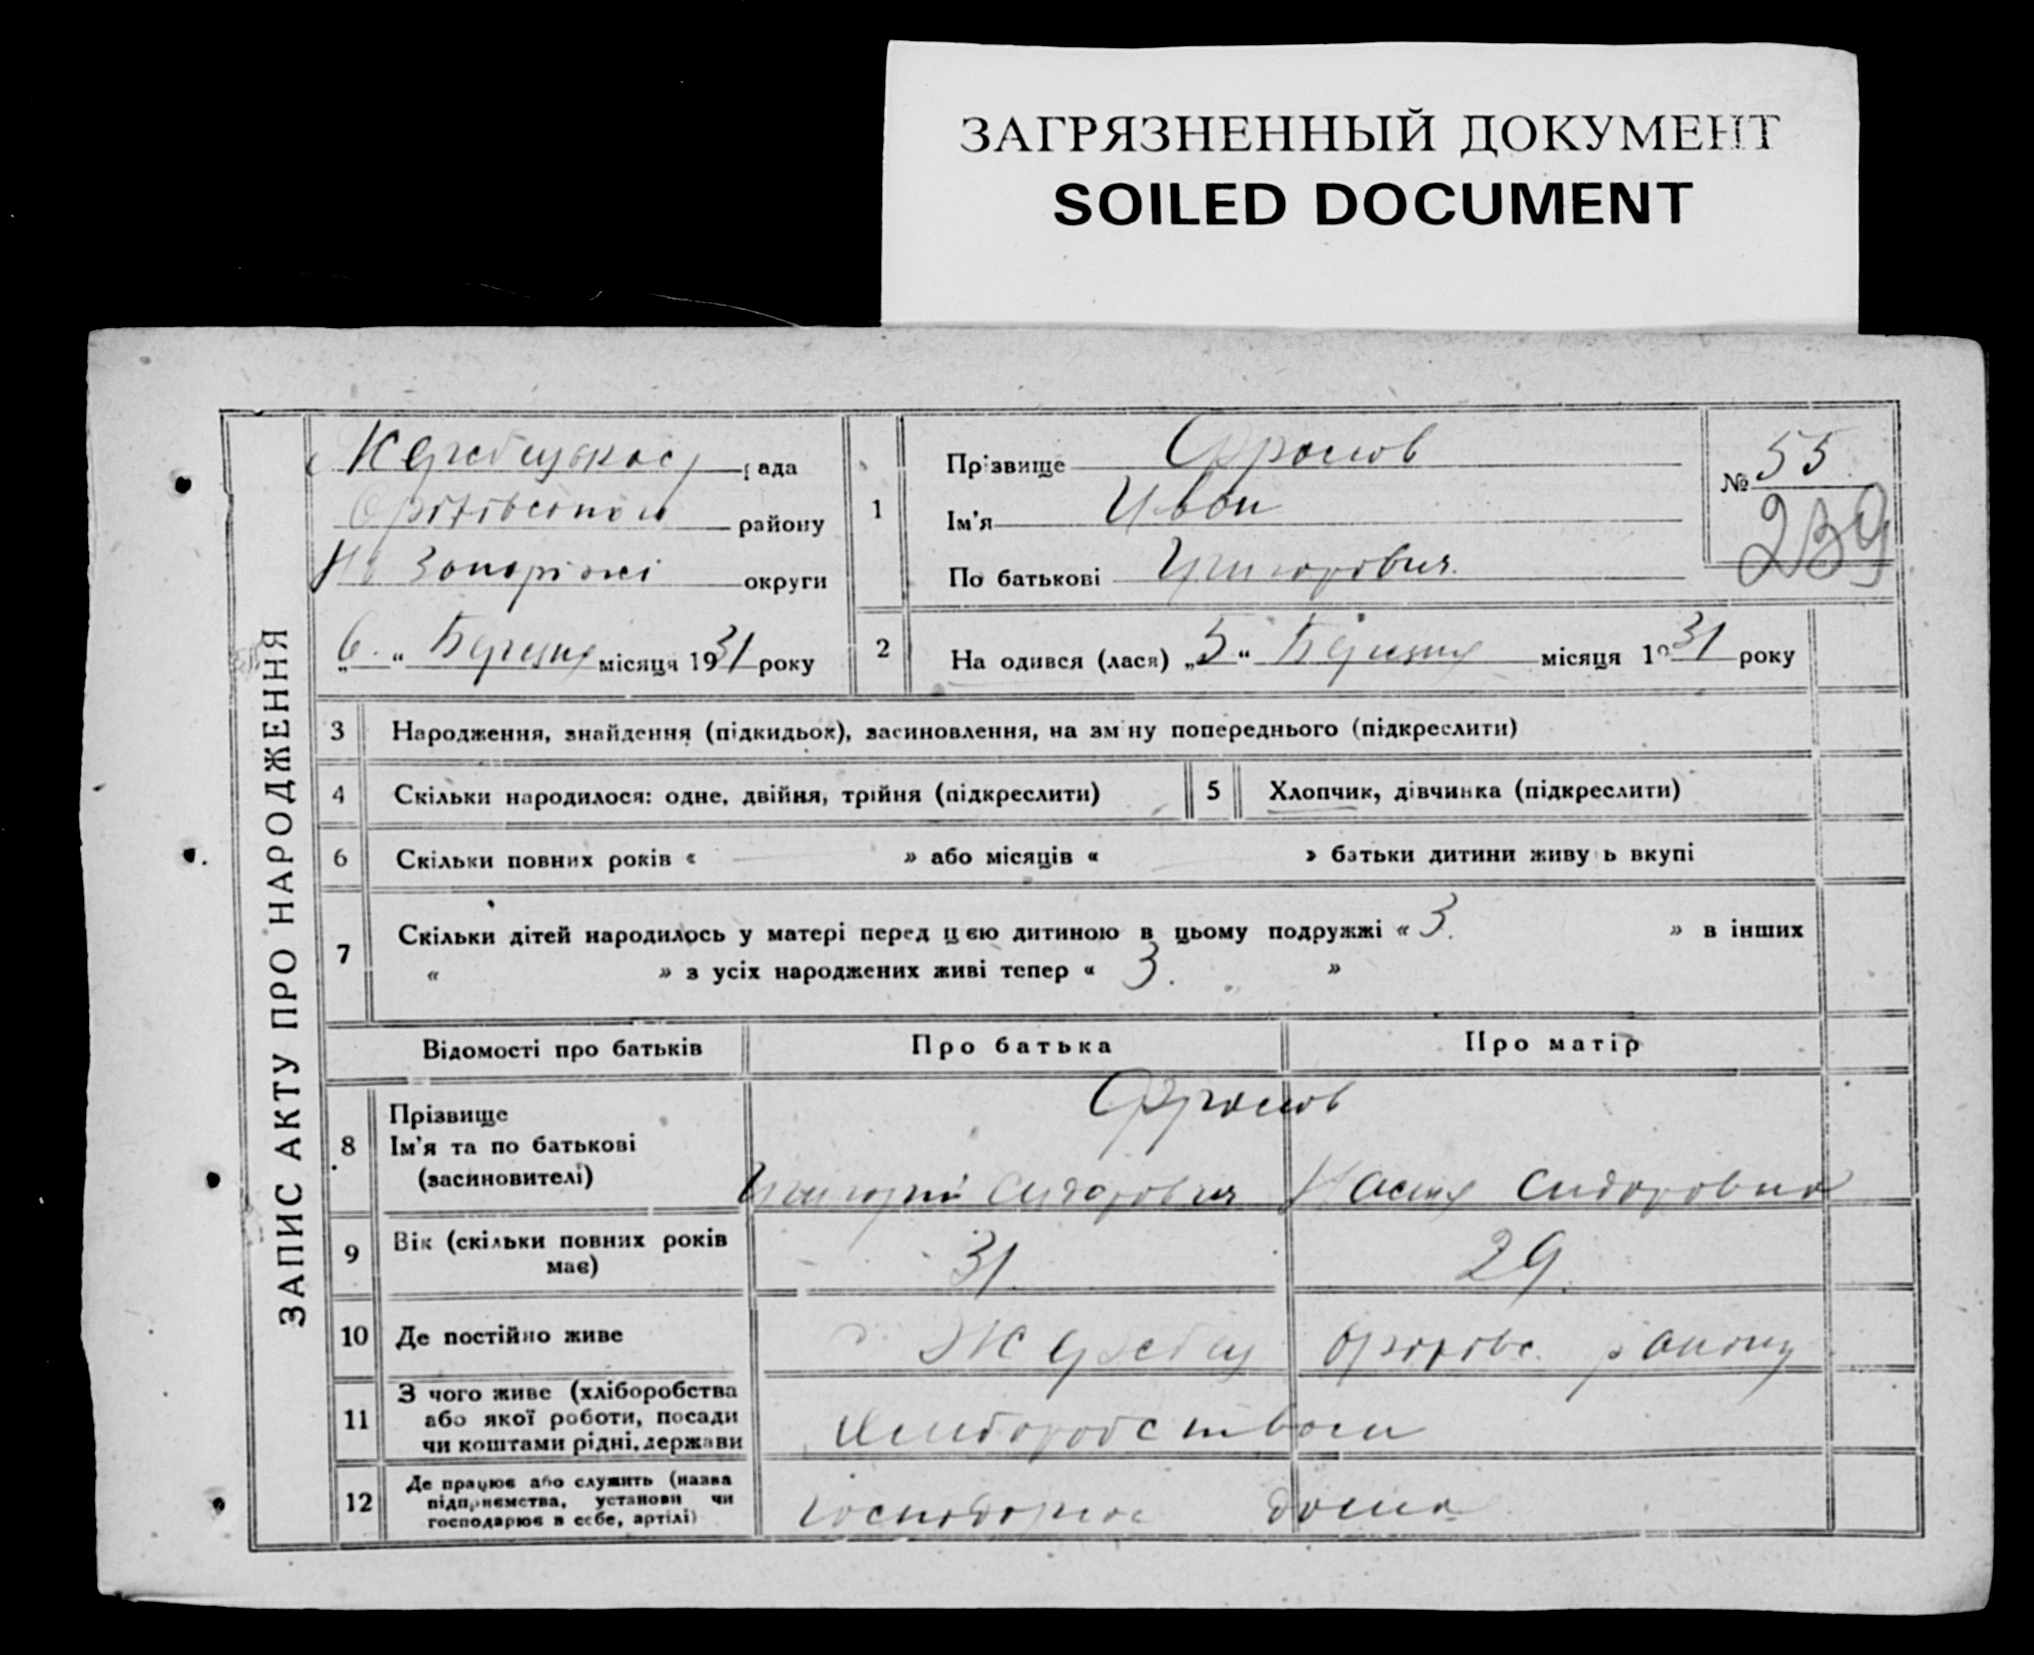 ЗАГРЯЗНЕННЫЙ ДОКУМЕНТ
SOILED DOCUMENT
ЗАПИС АКТУ ПРО НАРОДЖЕННЯ
рада
району
Запоріжі округи
„6“ Березня місяця 1931 року
1
Прізвище Фролов
Ім'я Иван
По батькові Григорович
№ 55
239
2 На одився (лася) „5“ Березня місяця 1931 року
3 Народження, знайдення (підкидьок), засиновлення, на зм ну попереднього (підкреслити)
4 Скільки народилося: одне, двійня, трійня (підкреслити)
5 Хлопчик, дівчинка (підкреслити)
6 Скільки повних років « » або місяців « » батьки дитини живу ь вкупі
7 Скільки дітей народилось у матері перед цією дитиною в цьому подружжі « 3. » в інших
« » з усіх народжених живі тепер « 3. »
Відомості про батьків Про батька Про матір
8 Прізвище
Ім'я та по батькові
(засиновителі)
Фролов
Григорій Сидорович Настя Сидоровна
9 Вік (скільки повних років
має)
31 29
10 Де постійно живе
с Жеребец Оріхівс. району
11 З чого живе (хліборобства
або якої роботи, посади
чи коштами рідні, держави
Хлиборобством
12 Де працює або служить (назва
підприємства, установи чи
господарює в себе, артілі)
дома